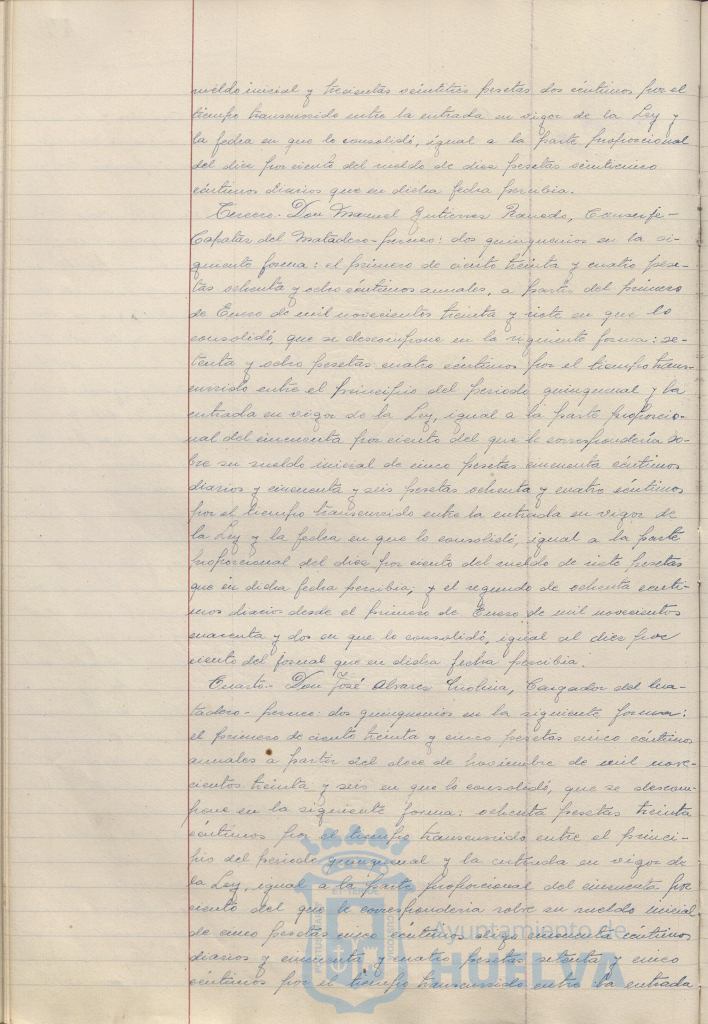 sueldo inicial y trescientas veintitres pesetas dos céntimos por el
tiempo transcurrido entre la entrada en vigor de la Ley y
la fecha en que lo consolidó, igual a la parte proporcional
del diez por ciento del sueldo de diez pesetas veinticinco
céntimos diarios que en dicha fecha percibia.
Tercero.- Don Manuel Gutierrez Ranedo, Conserje-
Capataz del Matadero-perneo: dos quinquenios en la si-
guiente forma: el primero de ciento treinta y cuatro pese-
tas ochenta y ocho céntimos anuales, a partir del primero
de Enero de mil novecientos treinta y siete en que lo
consolidó, que se descompone en la siguiente forma: se-
tenta y ocho pesetas cuatro céntimos por el tiempo trans-
currido entre el principio del periodo quinquenal y la
entrada en vigor de la Ley, igual a la parte proporcio-
nal del cincuenta por ciento del que le correspondería so-
bre su sueldo inicial de cinco pesetas cincuenta céntimos
diarios y cincuenta y seis pesetas ochenta y cuatro céntimos
por el tiempo transcurrido entre la entrada en vigor de
la Ley y la fecha en que lo consolidó, igual a la parte
proporcional del diez por ciento del sueldo de siete pesetas
que en dicha fecha percibia; y el segundo de ochenta cénti-
mos diarios desde el primero de Enero de mil novecientos
cuarenta y dos en que lo consolidó, igual al diez por
ciento del jornal que en dicha fecha percibia.
Cuarto.- Don José Alvarez Molina, Cargador del Ma-
tadero-perneo: dos quinquenios en la siguiente forma:
el primero de ciento treinta y cinco pesetas cinco céntimos
anuales a partir del doce de noviembre de mil nove-
cientos treinta y seis en que lo consolidó, que se descom-
pone en la siguiente forma: ochenta pesetas treinta
céntimos por el tiempo transcurrido entre el princi-
pio del periodo quinquenal y la entrada en vigor de
la Ley, igual a la parte proporcional del cincuenta por
ciento del que le correspondería sobre su sueldo inicial
de cinco pesetas cincuenta céntimos
diarios y cincuenta y cuatro pesetas setenta y cinco
céntimos por el tiempo transcurrido entre la entrada
Ayuntamiento de
HUELVA